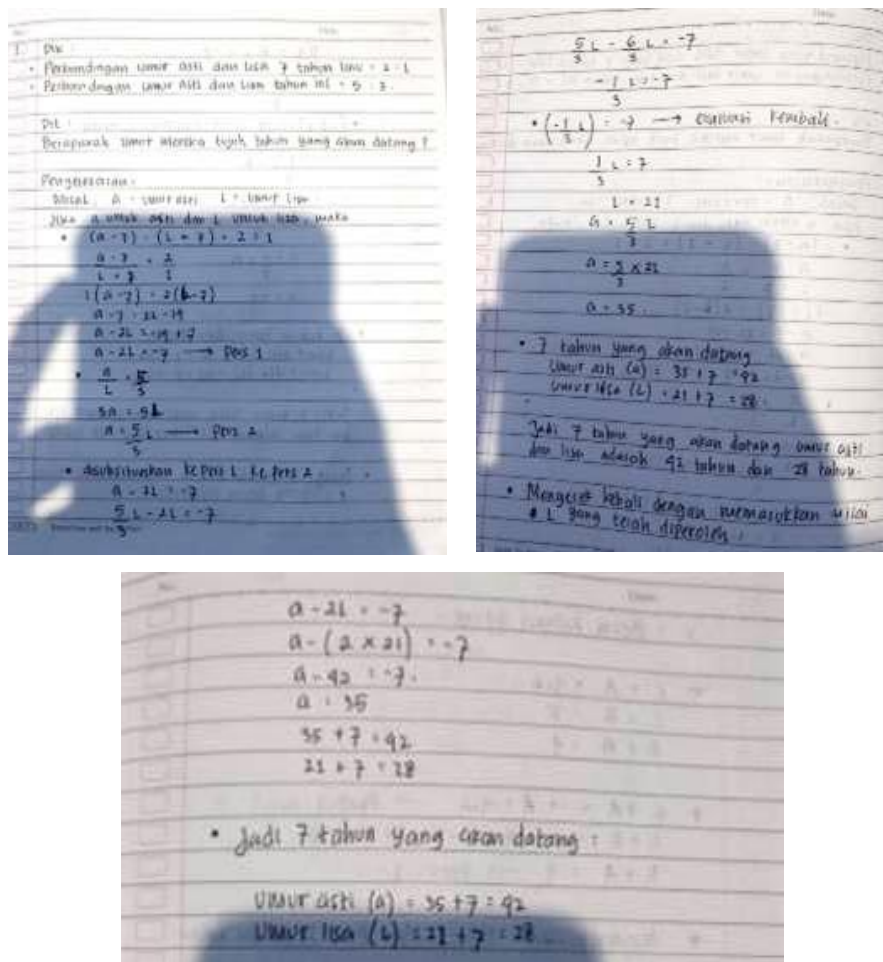 1. Dik :
• Perbandingan umur asti dan lisa 7 tahun lalu = 2 : 1
• Perbandingan umur asti dan lisa tahun ini = 5 : 3.
Dit :
Berapakah umur mereka tujuh tahun yang akan datang ?
Penyelesaian :
Misal A = umur asti L = umur lisa
Jika a untuk asti dan L untuk lisa, maka
• (a - 7) : (L - 7) = 2 : 1
a - 7 / L - 7 = 2 / 1
1(a - 7) = 2(L - 7)
a - 7 = 2L - 14
a - 2L = -14 + 7
a - 2L = -7 → Pers 1
• a / L = 5 / 3
3a = 5L
a = 5/3 L → Pers 2
• disubsitusikan ke Pers 1 ke Pers 2
a - 2L = -7
5/3 L - 2L = -7
5/3 L - 6/3 L = -7
-1/3 L = -7
• (-1/3 L) = -7 → kembali.
1/3 L = 7
L = 21
a = 5/3 L
a = 5/3 x 21
a = 35.
• 7 tahun yang akan datang
Umur asti (a) = 35 + 7 = 42
Umur lisa (L) = 21 + 7 = 28.
Jadi 7 tahun yang akan datang umur asti
dan lisa adalah 42 tahun dan 28 tahun.
• Mengecek kebali dengan memasukkan nilai
L yang telah diperoleh :
a - 2L = -7
a - (2 x 21) = -7
a - 42 = -7.
a = 35
35 + 7 = 42
21 + 7 = 28
• Jadi 7 tahun yang akan datang :
Umur asti (a) = 35 + 7 = 42
Umur lisa (L) = 21 + 7 = 28